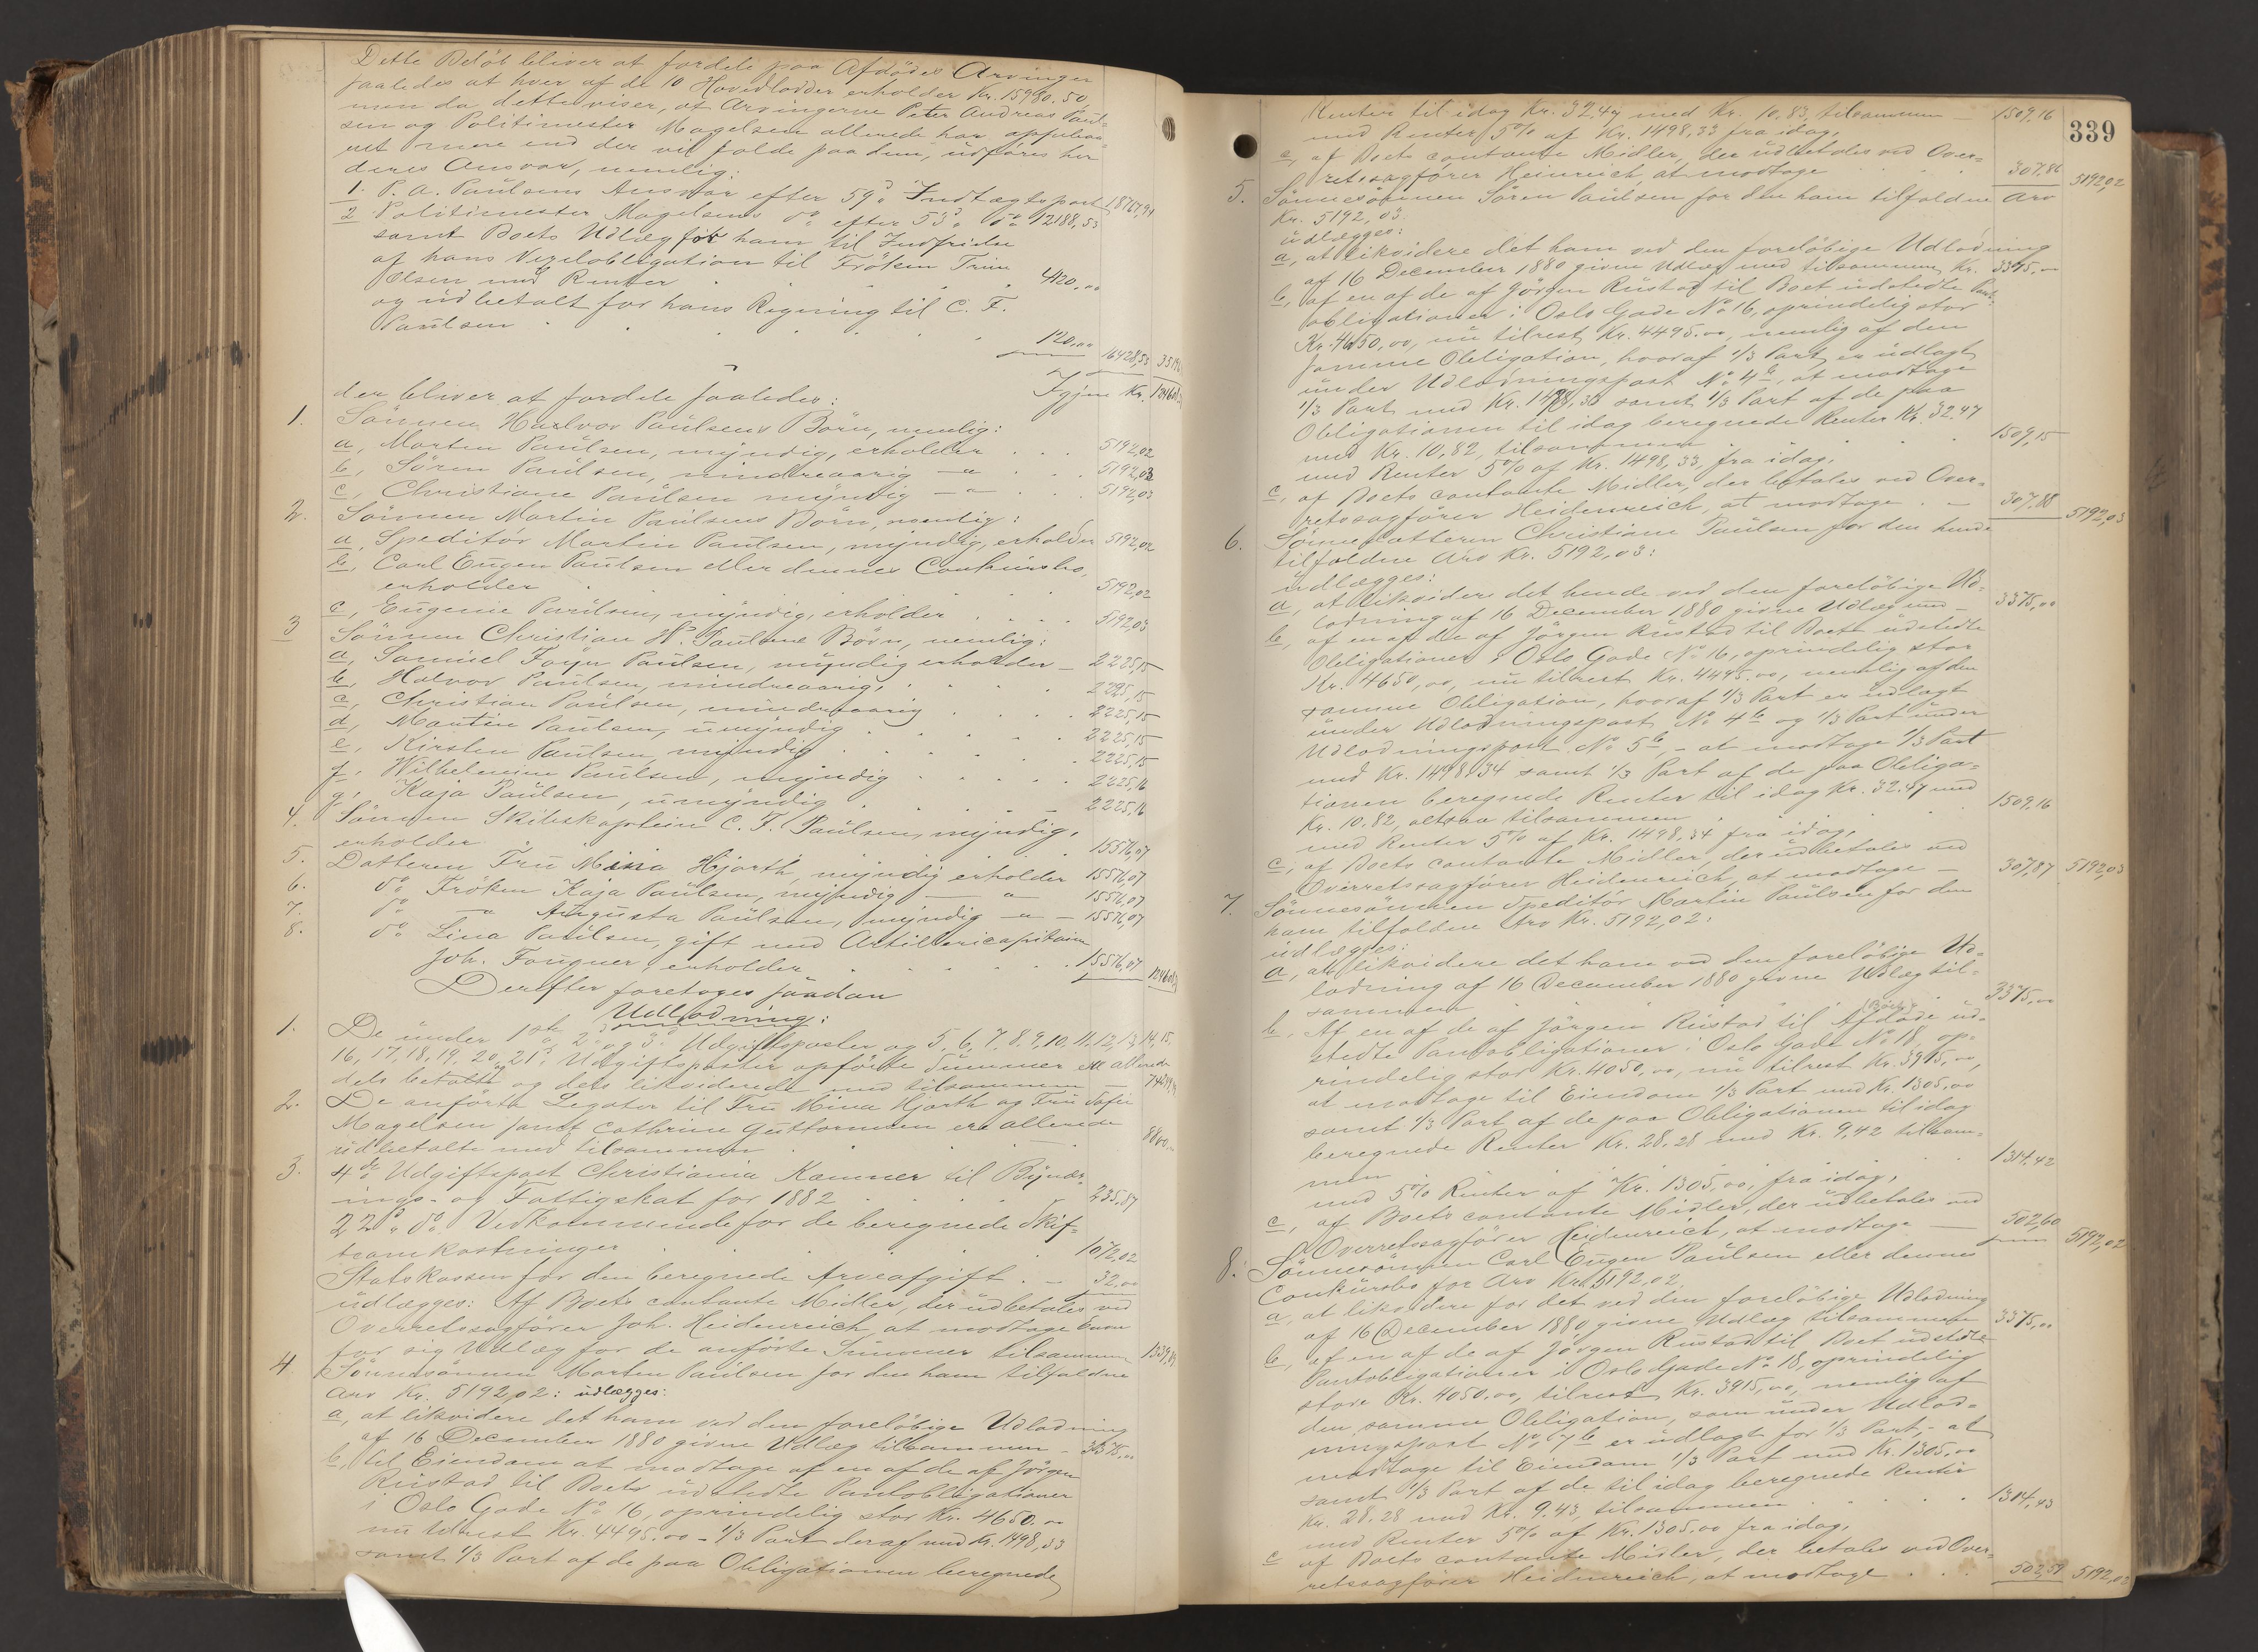 Dette Beløb bliver at fordele paa Afdødes Arvinger
saaledes at hver af de 10 Hovedlodder erholder Kr. 15980,50,
men da dette viser, at Arvingerne Peter Andreas Paul-
sen og Politimester Magelsen allerede har
met mere end der vil falde paa dem, udføres her
deres Ansvar, nemlig:
1. P. A. Paulsens Ansvar efter 59d Indtægtspost 18767,94
2 Politimester Magelsens do efter 53d do 12188,53
samt Boets Udlæg for ham til Indfrielse
af hans Vexelobligation til Frøken Trine
Olsen med Renter 4120,00
og udbetalt for hans Regning til C. F.
Paulsen 120,00 16428,53
Igjen Kr.
der bliver at fordele saaledes:
1. Sønnen Halvor Paulsens Børn, nemlig:
a, Morten Paulsen, myndig, erholder 5192,02
b, Søren Paulsen, mindreaarig — " 5192,03
c, Christiane Paulsen myndig — " 5192,03
2. Sønnen Martin Paulsens Børn, nemlig:
a, Speditør Martin Paulsen, myndig, erholder 5192,02
b, Carl Eugen Paulsen eller dennes Conkursbo,
erholder 5192,02
c, Eugenie Paulsen, myndig, erholder 5192,03
3 Sønnen Christian H. Paulsens Børn, nemlig:
a, Samuel Foyn Paulsen, myndig erholder — 2225,15
b, Halvor Paulsen, mindreaarig, 2225,15
c, Christian Paulsen, mindreaarig 2225,15
d, Martin Paulsen, umyndig 2225,15
e, Kirsten Paulsen, myndig 2225,15
f, Wilhelmine Paulsen, myndig 2225,16
g, Kaja Paulsen, umyndig 2225,16
4. Sønnen Skibskaptein C. F. Paulsen, myndig,
erholder 15576,07
5. Datteren Fru Mina Hjorth, myndig erholder 15576,07
6. do Frøken Kaja Paulsen, myndig — " 15576,07
7. do — " Augusta Paulsen, myndig — " — 15576,07
8. do Lina Paulsen, gift med Artillericapitain
Joh. Fougner, erholder 15576,07
Derefter foretages saadan
Udlodning:
1. De under 1ste, 2d og 3d Udgiftsposter og 5, 6, 7, 8, 9, 10, 11, 12, 13, 14, 15,
16, 17, 18, 19, 20 og 21d Udgiftsposter opførte Summer ere allerede
dels betalte og dels likviderede med tilsammen
2. De anførte Legater til Fru Mina Hjorth og Fru Sofie
Magelsen samt Cathrine Guttormsen ere allerede
udbetalte med tilsammen 8800,
3. 4de Udgiftspost Christiania Kæmner til Bynær-
ings- og Fattigskat for 1882 235.87
22d do Vedkommende for de beregnede Skif-
teomkostninger 1072,02
Statskassen for den beregnede Arveafgift. — 32.00
udlægges: Af Boets contante Midler, der udbetales ved
Overretssagfører Joh. Heidenreich at modtage Enhver
for sig Udlæg for de anførte Summer tilsammen 1339,89
4. Sønnesønnen Morten Paulsen for den ham tilfaldne
Arv Kr. 5192,02: udlægges:
a, at likvidere det ham ved den foreløbige Udlodning
af 16 December 1880 givne Udlæg tilsammen — 3375,00
b, til Eiendom at modtage af en af de af Jørgen
Rustad til Boet udstedte Pantobligationer
i Oslo Gade No 16, oprindelig stor Kr. 4650.00
nu tilrest Kr. 4495.00 — 1/3 Part deraf med Kr. 1498,33
samt 1/3 Part af de paa Obligationen beregnede
339
Renter til idag Kr. 32.47 med Kr. 10.83, tilsammen — 1509,16
med Renter 5% af Kr. 1498,33 fra idag,
c, af Boets contante Midler, der udbetales ved Over-
retssagfører Heinreich, at modtage 307,86 5192,02
5. Sønnesønnen Søren Paulsen for den ham tilfaldne Arv
Kr. 5192,03.
udlægges:
a, at likvidere det ham ved den foreløbige Udlodning
af 16 December 1880 givne Udlæg med tilsammen Kr. 3375,00
b, af en af de af Jørgen Rustad til Boet udstedte Pant-
obligationer i Oslo Gade No 16, oprindelig stor
Kr. 4650,00, nu tilrest Kr. 4495.00, nemlig af den
samme Obligation, hvoraf 1/3 Part er udlagt
under Udlodningspost No 4b, at modtage
1/3 Part med Kr. 1498,33 samt 1/3 Part af de paa
Obligationen til idag beregnede Renter Kr. 32.47
med Kr. 10.82, tilsammen 1509,15
med Renter 5% af Kr. 1498,33, fra idag,
c, af Boets contante Midler, der betales ved Over-
retssagfører Heidenreich, at modtage 307,88 5192,03
6. Sønnedatteren Christiane Paulsen for den hende
tilfaldne Arv Kr. 5192,03:
udlægges:
a, at likvidere det hende ved den foreløbige Ud-
lodning af 16 December 1880 givne Udlæg med — 3375,00
b, af en af de af Jørgen Rustad til Boet udstedte
Obligationer i Oslo Gade No 16, oprindelig stor
Kr. 4650,00, nu tilrest Kr. 4495.00, nemlig af den
samme Obligation, hvoraf 1/3 Part er udlagt
under Udlodningspost No 4b og 1/3 Part under
Udlodningspost No 5b, — at modtage 1/3 Part
med Kr. 1498.34 samt 1/3 Part af de paa Obliga-
tionen beregnede Renter til idag Kr. 32.47 med
Kr. 10.82, altsaa tilsammen 1509.16
med Renter 5% af Kr. 1498,34 fra idag,
c, af Boets contante Midler, der udbetales ved
Overretssagfører Heidenreich, at modtage — 307,87 5192,03
7. Sønnesønnen Speditør Martin Paulsen for den
ham tilfaldne Arv Kr. 5192,02:
udlægges:
a, at likvidere det ham ved den foreløbige Ud-
lodning af 16 December 1880 givne Udlæg til-
sammen 3375,00
b, Af en af de af Jørgen Rustad til Afdøde ud-
stedte Pantobligationer i Oslo Gade No 18, op-
rindelig stor Kr. 4050,00, nu tilrest Kr. 3915,00,
at modtage til Eiendom 1/3 Part med Kr. 1305.00
samt 1/3 Part af de paa Obligationen til idag
beregnede Renter Kr. 28,28 med Kr. 9,42 tilsam-
men 1314,42
med 5% Renter af Kr. 1305,00, fra idag,
c, af Boets contante Midler, der udbetales ved
Overretssagfører Heidenreich, at modtage — 502,60 5192,02
8. Sønnesønnen Carl Eugen Paulsen eller dennes
Conkursbo for Arv Kr. 5192,02.
a, at likvidere for det ved den foreløbige Udlodning
af 16 December 1880 givne Udlæg tilsammen 3375,00
b, af en af de af Jørgen Rustad til Boet udstedte
Pantobligationer i Oslo Gade No 18, oprindelig
store Kr. 4050.00, tilrest Kr. 3915,00, nemlig af
den samme Obligation, som under Udlod-
ningspost No 7b er udlagt for 1/3 Part, — at
modtage til Eiendom 1/3 Part med Kr. 1305.00
samt 1/3 Part af de til idag beregnede Renter
Kr. 28.28 med Kr. 9.43, tilsammen 1314,43
med Renter 5% af Kr. 1305.00 fra idag,
c af Boets contante Midler, der betales ved Over-
retssagfører Heidenreich, at modtage 502,59 5192,02